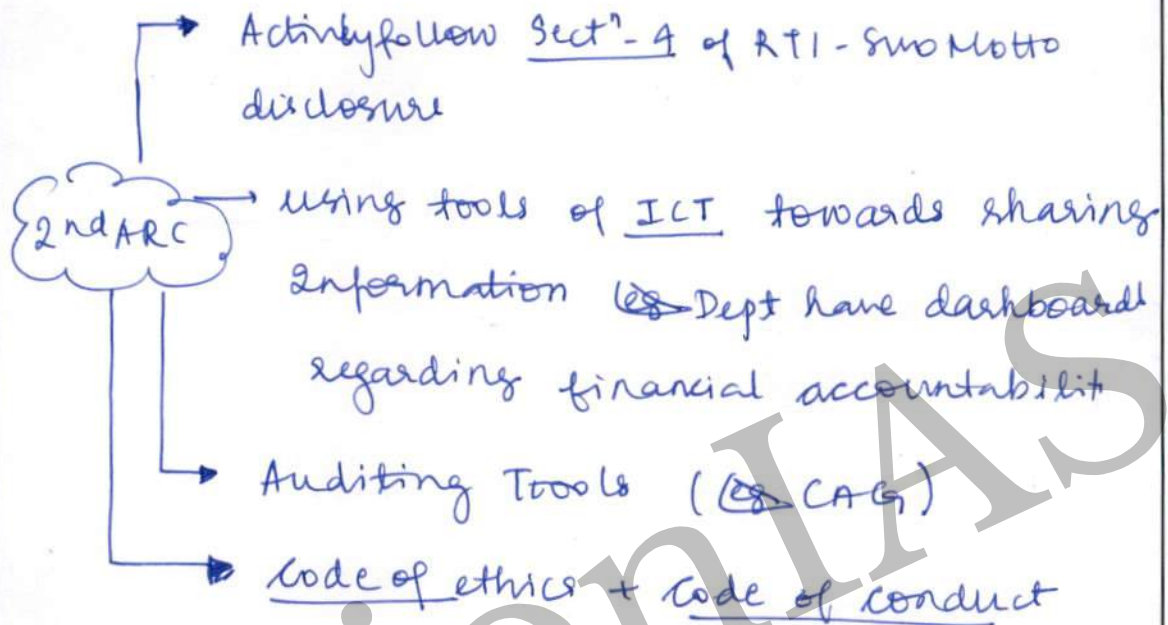 Activelyfollow Sectⁿ-4 of RTI - Suo Motto
disclosure
2nd ARC
using tools of ICT towards sharing
Information (eg Dept have dashboard
regarding financial accountabilit
Auditing Trools (eg CAG)
Code of ethics + Code of conduct
ionIAS